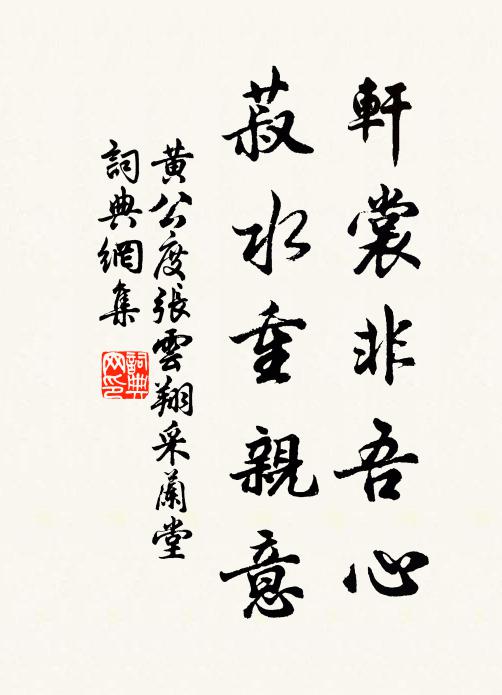 軒裳非吾心
菽水重親意
黄公度張雲翔采蘭堂
詞典網集
詞典网印